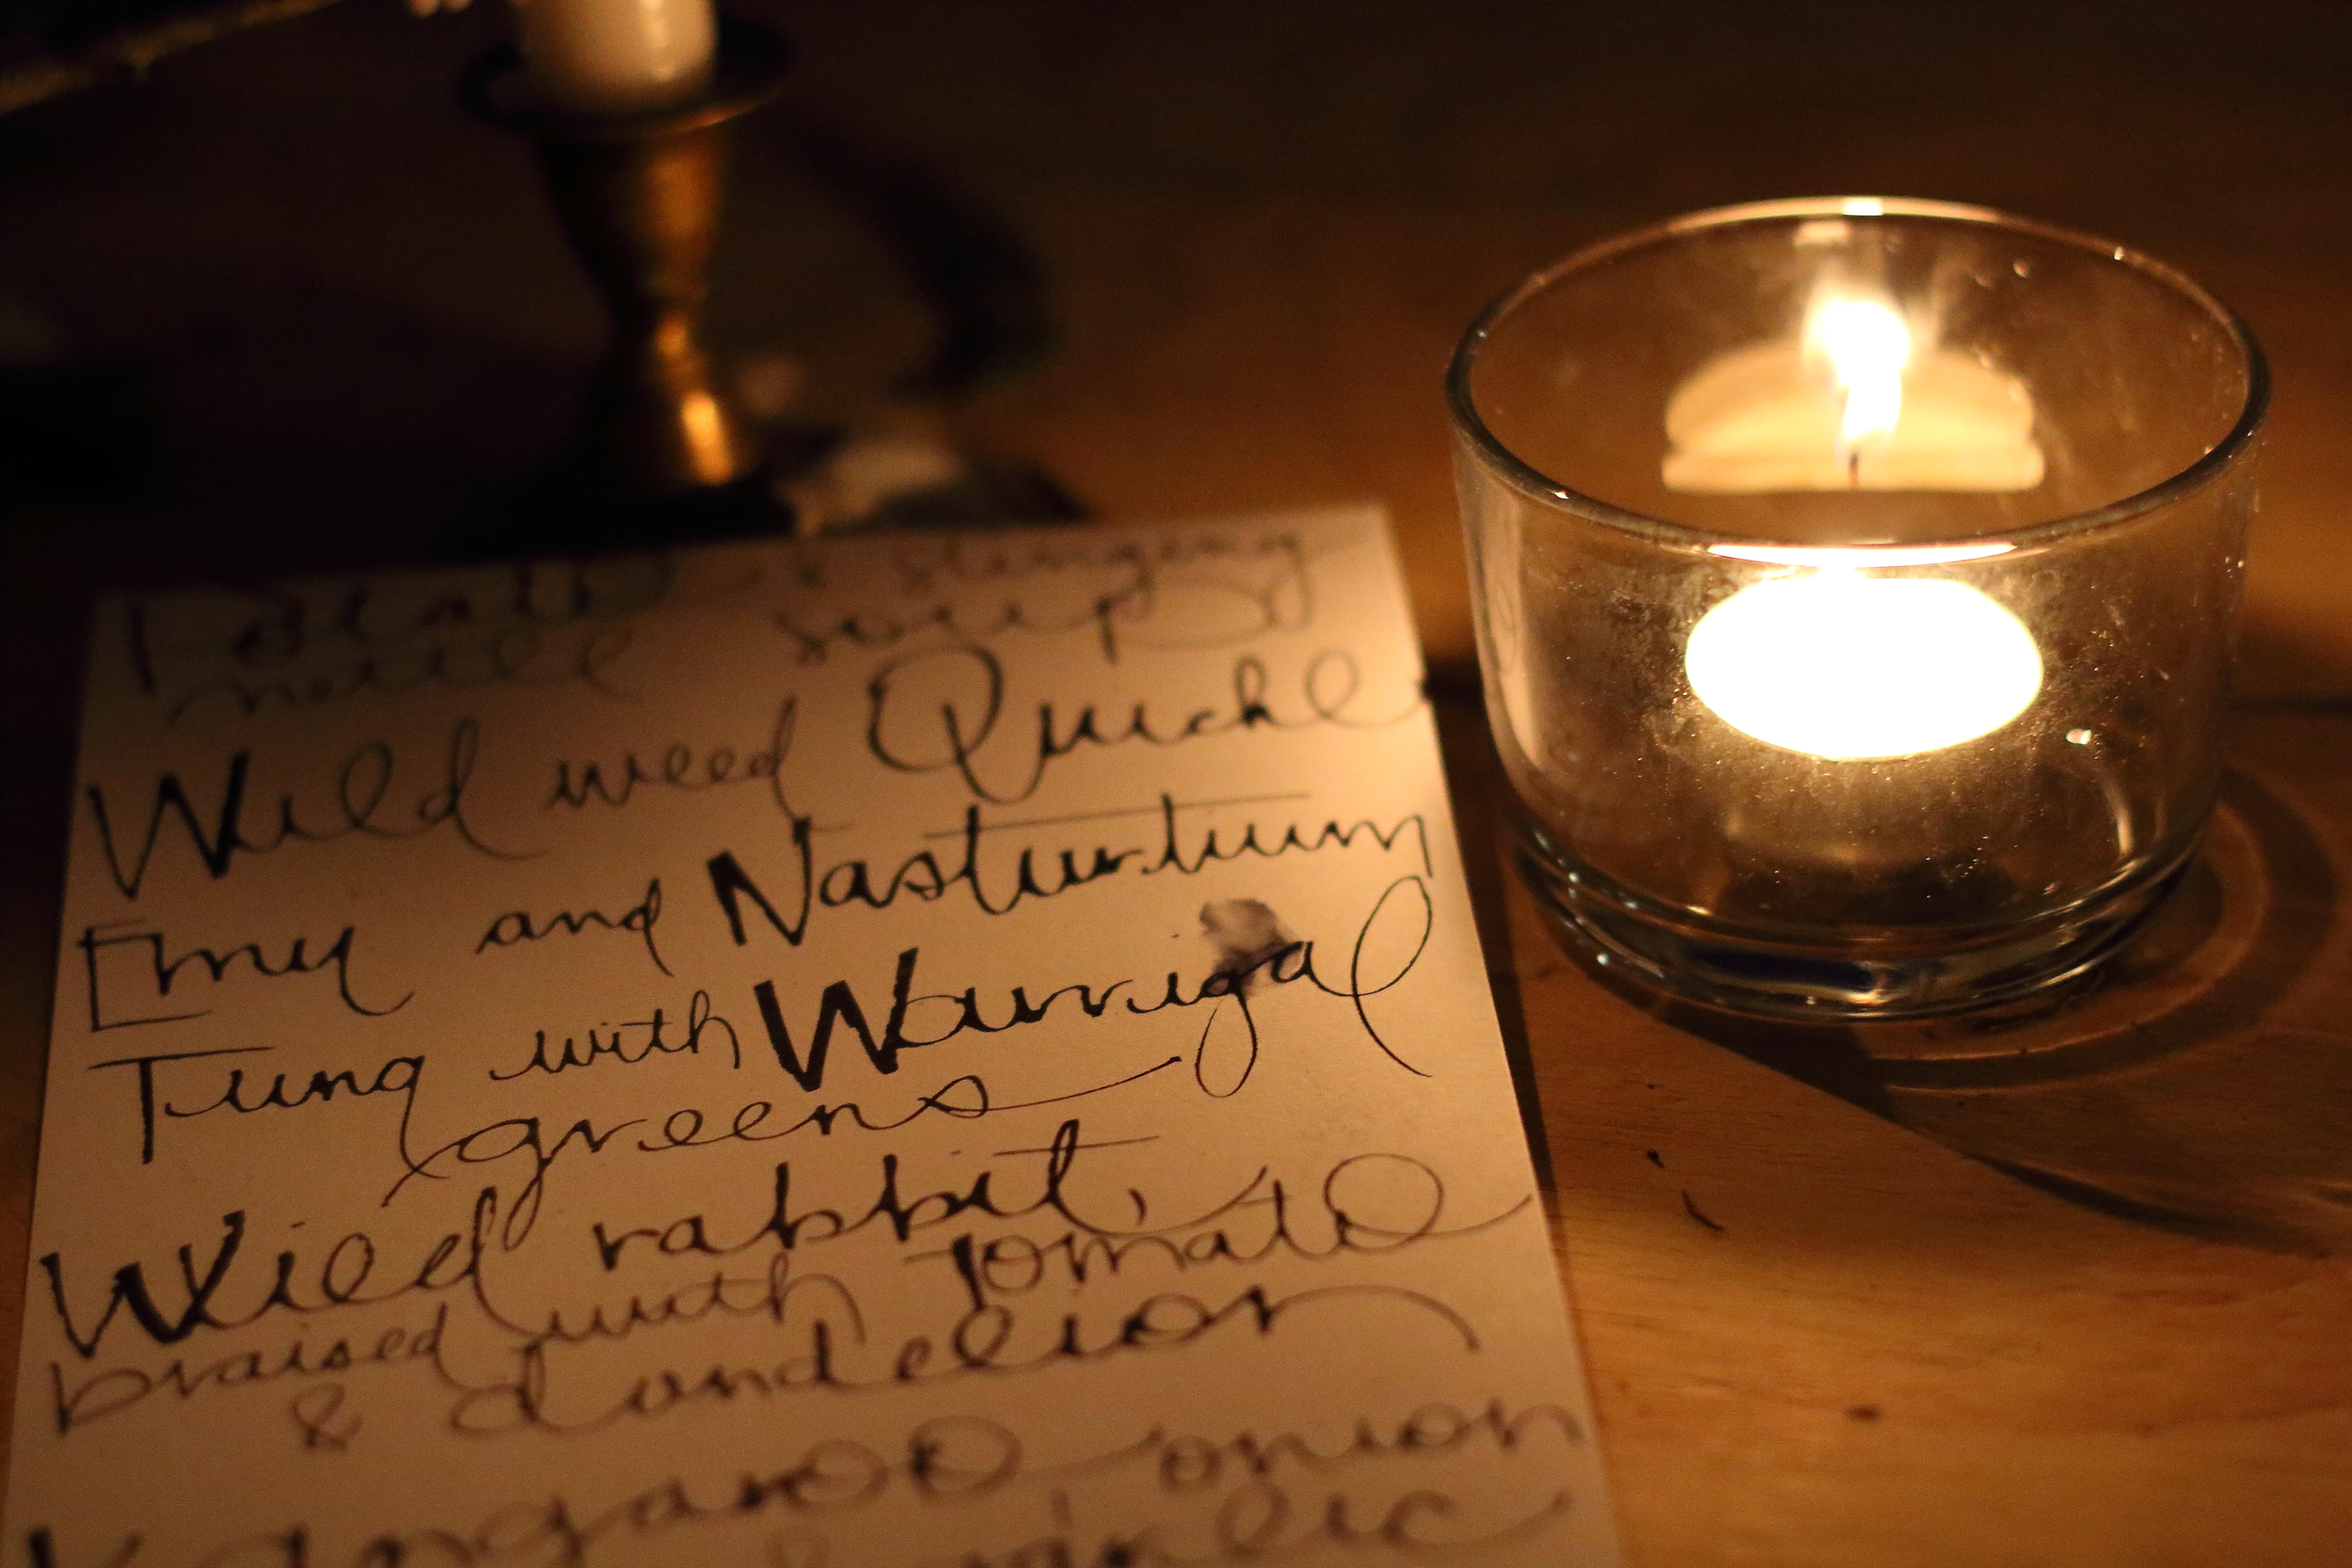 Potato & stinging
nettle soup
Wild weed Quiche
Emu and Nasturtium
Tung with Warrigal
greens
Wild rabbit,
braised with tomato
& dandelion
Kangaroo onion
garlic